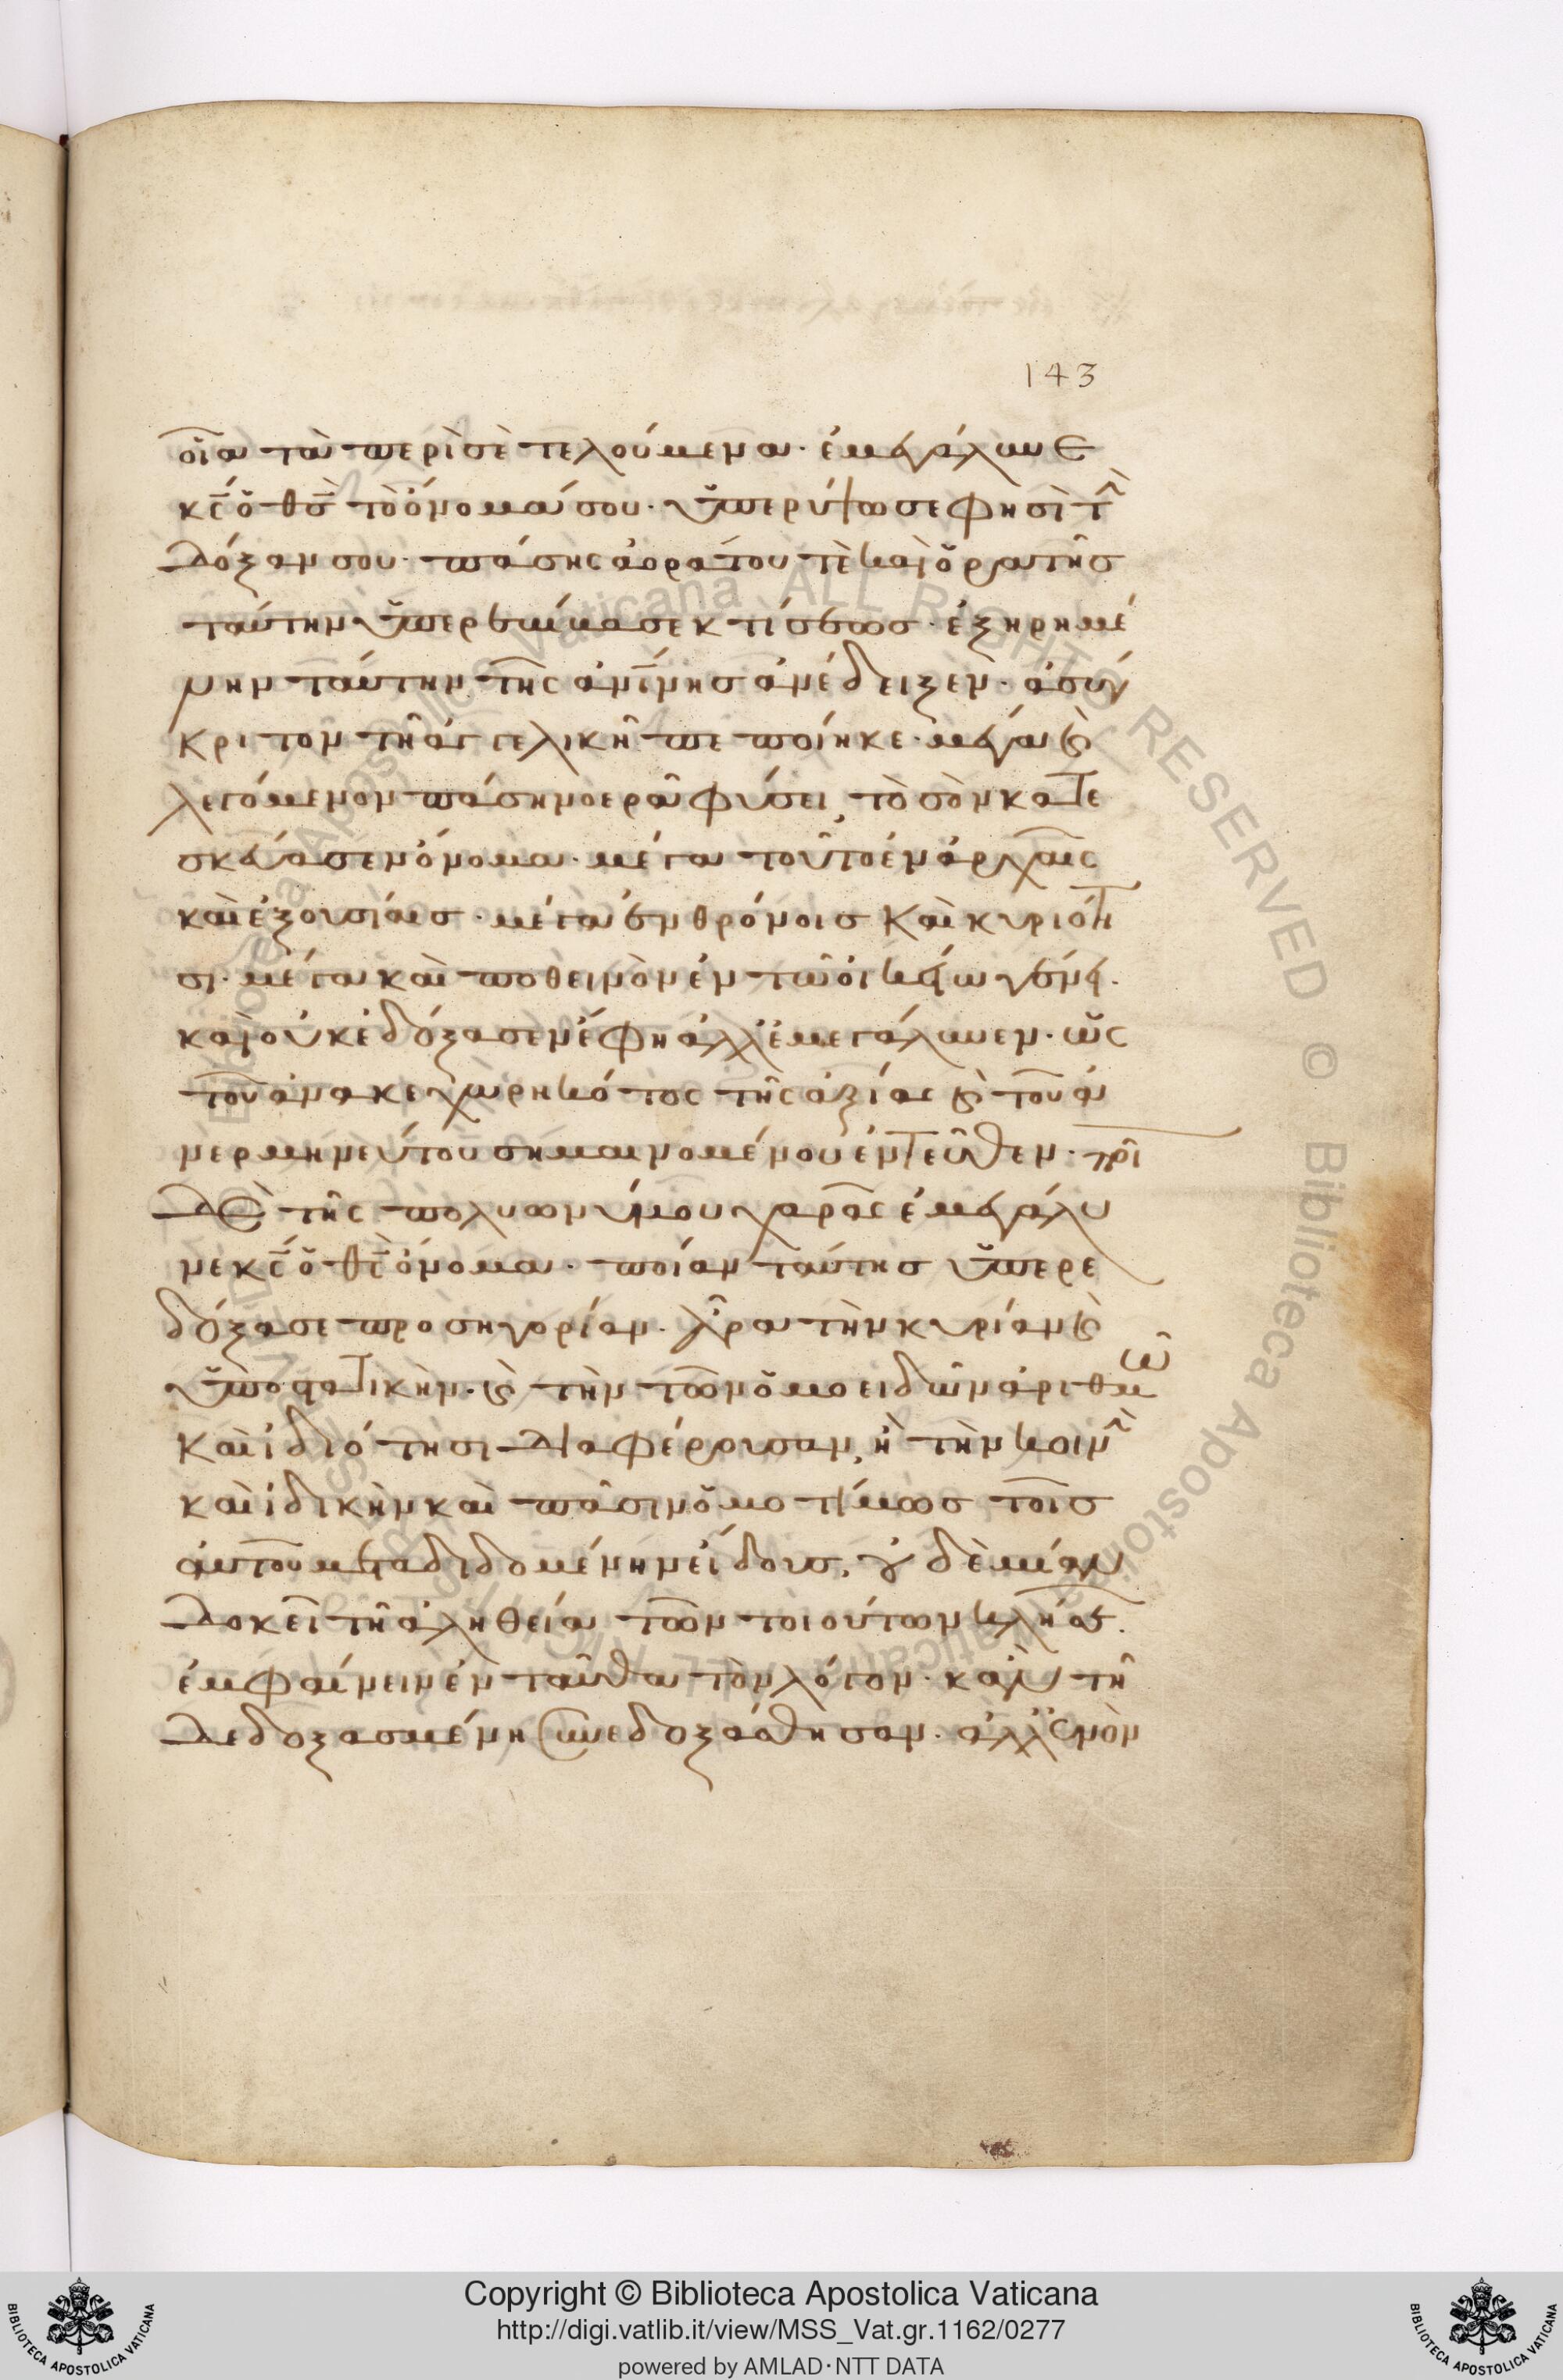 143
οἷα τὰ περὶ σὲ τελούμενα· ἐμεγάλυνε
κ̅ς̅ ὁ θ̅σ̅ τὸ ὄνομά σου· ὑπερύψωσε φησὶ τὴν
δόξαν σου· πάσης ἀοράτου τὲ καὶ ὁρατῆσ
ταύτην ὑπερβαίνειν κτίσεωσ· ἐξηρημέ
νην ταύτην τῆς ἀνθρωπίνησ ἀνέδειξεν· ἀσύγ
κριτον τῆ ἀγγελικῆ πεποίηκε· μέγα καὶ
λεγόμενον πάση νοερᾶ φύσει, τὸ σὸν κατε
σκεύασεν ὄνομα· μέγα τοῦτο ἐν ἀρχαῖς
καὶ ἐξουσίαισ· μέγα ἐν θρόνοισ καὶ κυριότη
σι· μέγα καὶ ποθεινὸν ἐν τῶ οἰκείω γένει·
καὶ οὐκ ἐδόξασεν ἔφη ἀλλ' ἐμεγάλυνεν· ὡς
τοῦ ἀνακεχωρηκότος τῆς ἀξίας καὶ τοῦ ἀ
νερμηνεύτου σημαινομένου ἐντεῦθεν·
δὲ τῆς πολυωνύμου χαρᾶς ἐμεγάλυ
νε κ̅ς̅ ὁ θ̅ς̅ ὄνομα· ποίαν ταύτησ ὑπερε
δόξασε προσηγορίαν· ἆρα τὴν κυρίαν καὶ
ὑποστατικὴν· καὶ τὴν τῶν ὁμοειδῶν ἀριθμῶ
καὶ ἰδιότησι διαφέρουσαν, ἢ τὴν κοινὴν
καὶ ἰδικὴν καὶ πᾶσιν ὁμοτίμωσ τοῖσ
αὐτοῦ μεταδιδομένην εἴδουσ, οὐδεμίαν
δοκεῖ τῆ ἀληθεία τῶν τοιούτων κλήσεων
ἐμφαίνειν ἐνταῦθα τὸν λόγον· κἂν τῆ
δεδοξασμένη συνεδοξάσθησαν· ἀλλ' ἐκεῖνον
Copyright © Biblioteca Apostolica Vaticana
http://digi.vatlib.it/view/MSS_Vat.gr.1162/0277
powered by AMLAD·NTT DATA